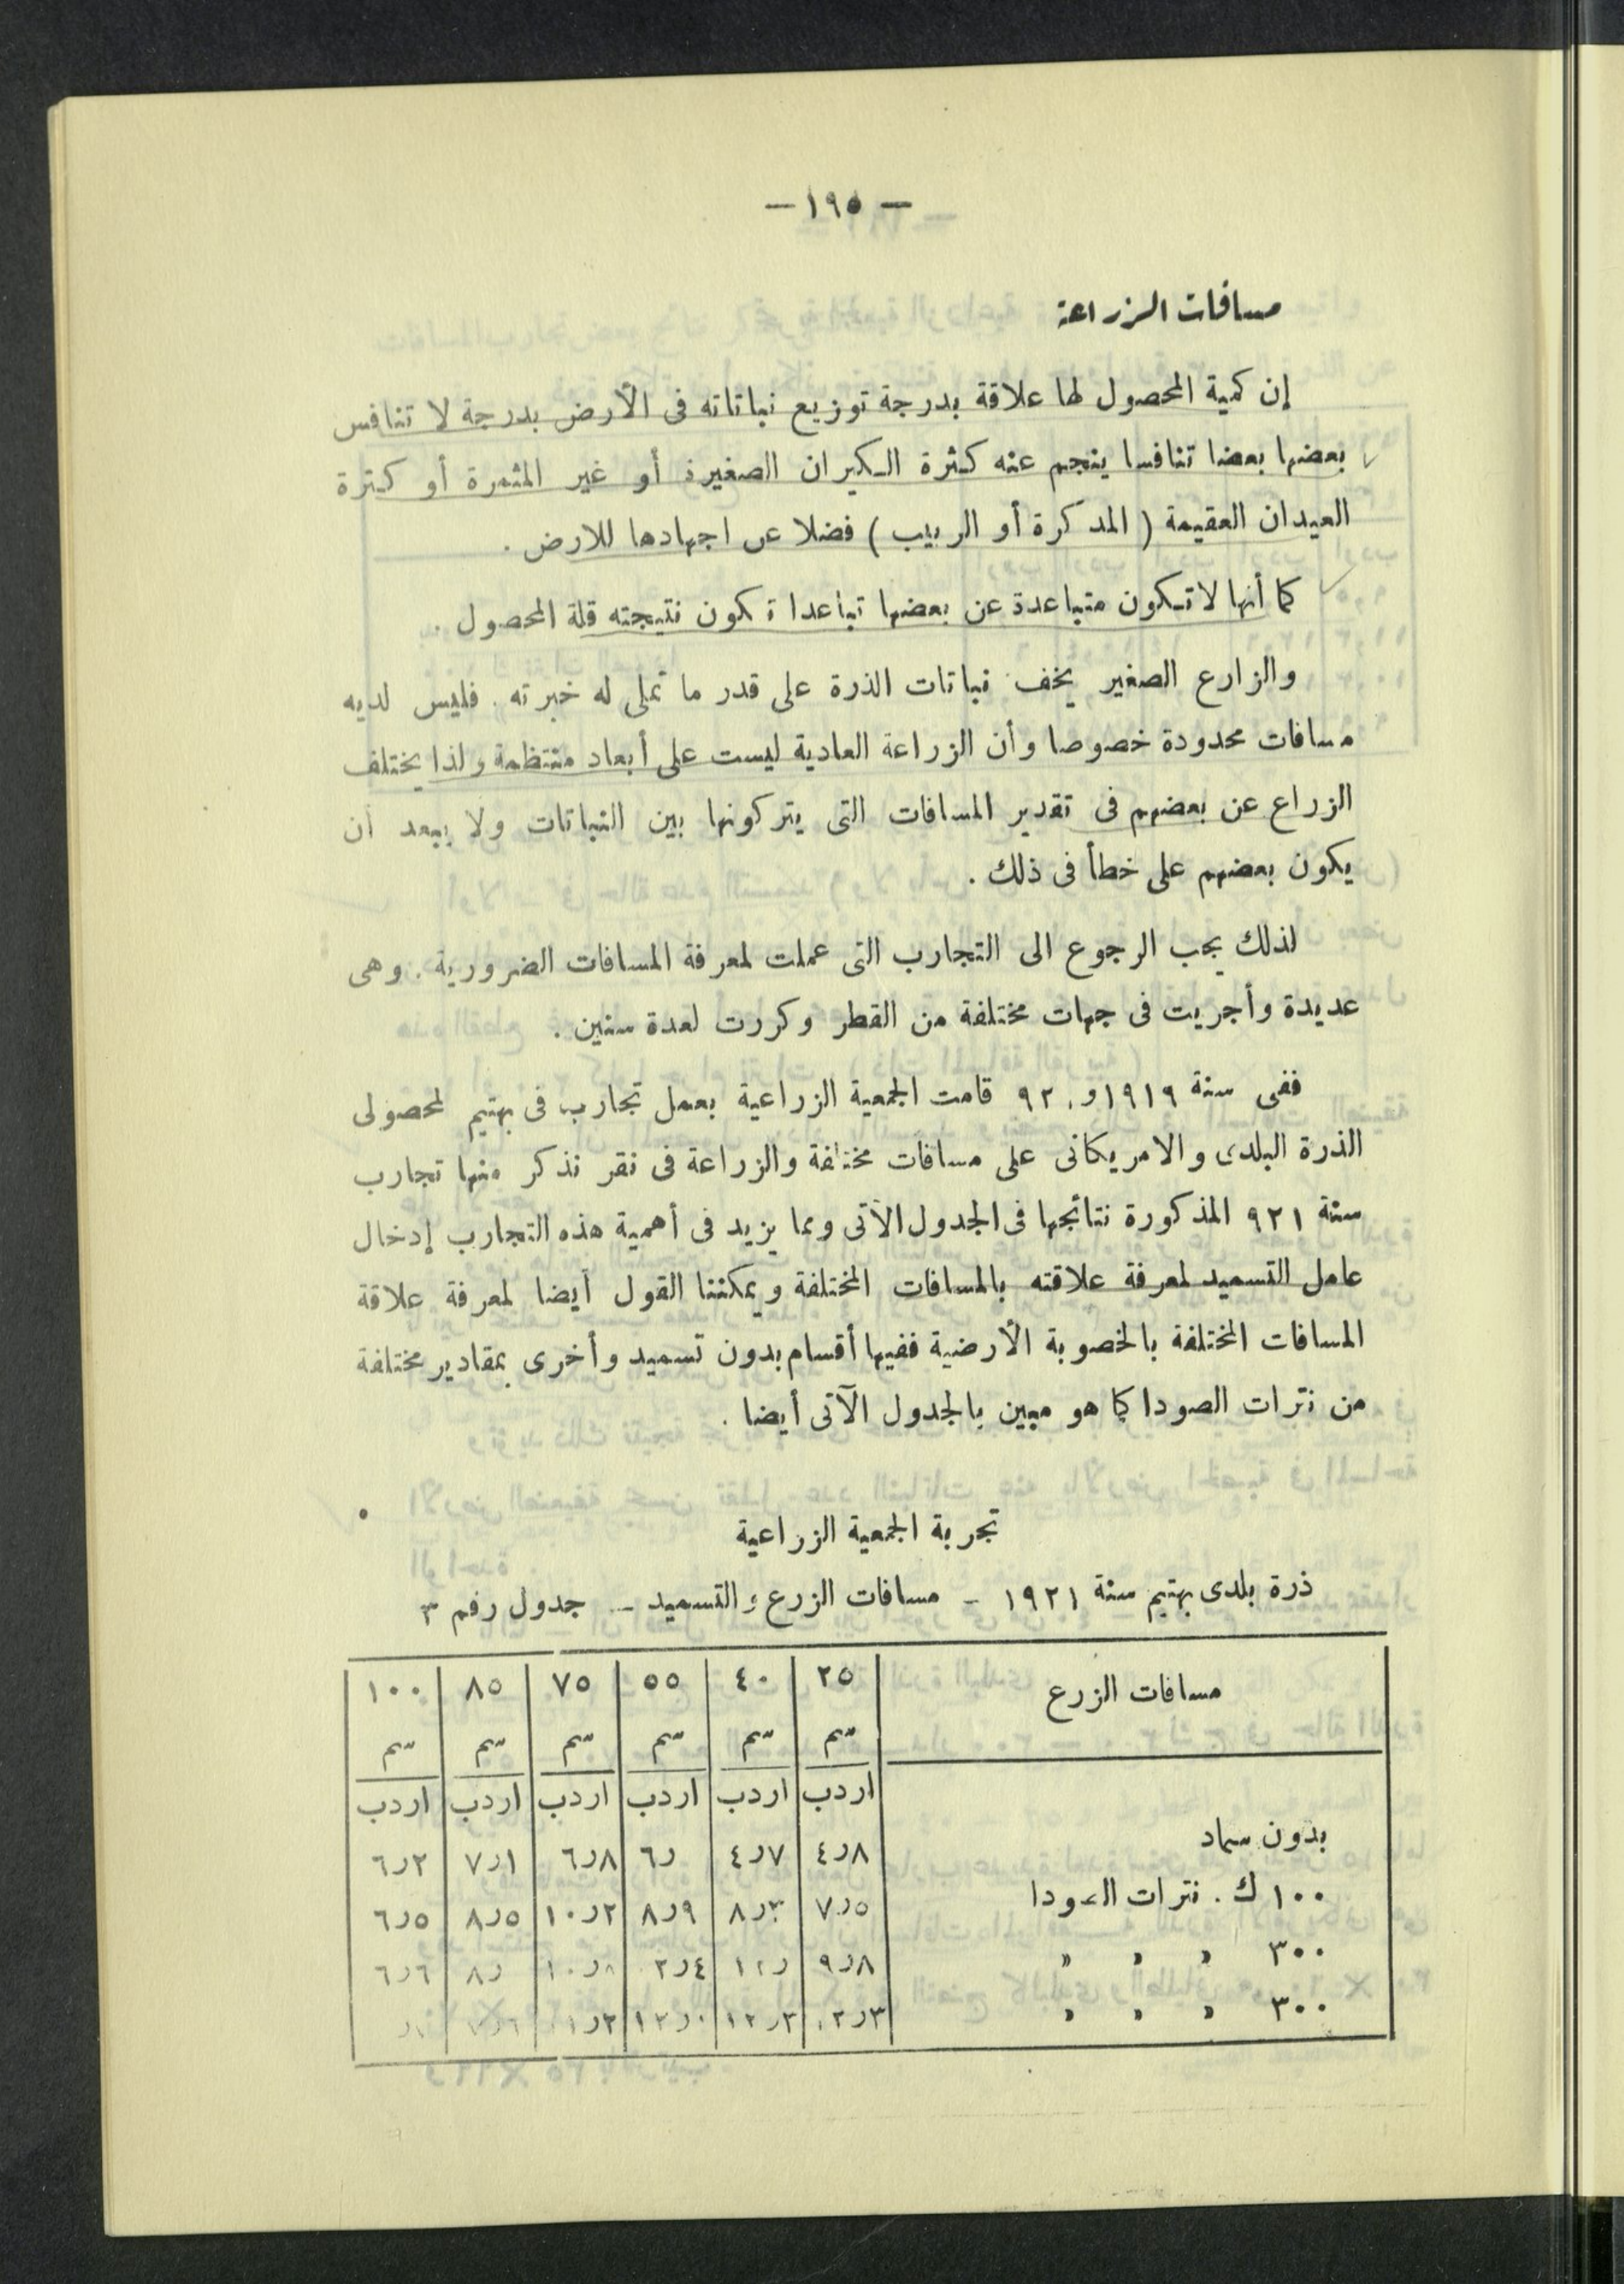 — ١٩٥ —
مسافات الزراعة
إن كمية المحصول لها علاقة بدرجة توزيع نباتاته فى الأرض بدرجة لا تتنافس
بعضها بعضا تنافسا ينجم عنه كثرة الكيران الصغيرة أو غير المثمرة أو كثرة
العيدان العقيمة ( المدكرة أو الربيب ) فضلا عن اجهادها للارض .
كما أنها لا تكون متباعدة عن بعضها تباعدا تكون نتيجته قلة المحصول .
والزارع الصغير يخف نباتات الذرة على قدر ما تملى له خبرته . فليس لديه
مسافات محدودة خصوصا وأن الزراعة العادية ليست على أبعاد منتظمة ولذا يختلف
الزراع عن بعضهم فى تقدير المسافات التى يتركونها بين النباتات ولا يبعد أن
يكون بعضهم على خطأ فى ذلك .
لذلك يجب الرجوع الى التجارب التى عملت لمعرفة المسافات الضرورية . وهى
عديدة وأجريت فى جهات مختلفة من القطر وكررت لعدة سنين .
ففى سنة ١٩١٩ و ٩٢٠ قامت الجمعية الزراعية بعمل تجارب فى بهتيم لمحصولى
الذرة البلدى والامريكانى على مسافات مختلفة والزراعة فى نقر نذكر منها تجارب
سنة ٩٢١ المذكورة نتائجها فى الجدول الآتى ومما يزيد فى أهمية هذه التجارب إدخال
عامل التسميد لمعرفة علاقته بالمسافات المختلفة ويمكننا القول أيضا لمعرفة علاقة
المسافات المختلفة بالخصوبة الأرضية ففيها أقسام بدون تسميد وأخرى بمقادير مختلفة
من نترات الصودا كما هو مبين بالجدول الآتى أيضا .
تجربة الجمعية الزراعية
ذرة بلدى بهتيم سنة ١٩٢١ - مسافات الزرع والتسميد - جدول رقم ٣
مسافات الزرع ٢٥ ٤٠ ٥٥ ٧٥ ٨٥ ١٠٠
سم سم سم سم سم سم
اردب اردب اردب اردب اردب اردب
بدون سماد ٤ر٨ ٤ر٧ ٦ر ٦ر٨ ٧ر١ ٦ر٢
١٠٠ ك . نترات الصودا ٧ر٥ ٨ر٣ ٨ر٩ ١٠ر٢ ٨ر٥ ٦ر٥
٣٠٠ » » » ٩ر٨ ٨ر ٦ر٦
٣٠٠ » » » ١٢ر٣